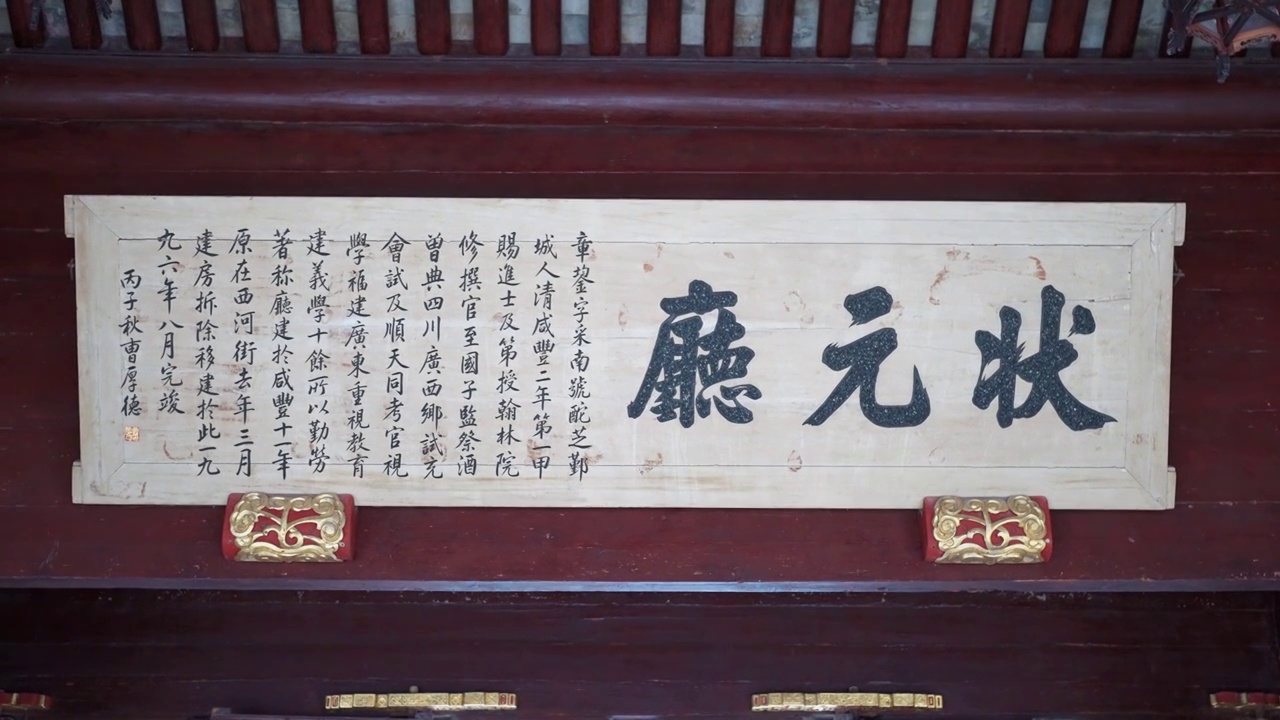 状元廳
章鋆字采南號酡芝鄞
城人清咸豐二年第一甲
賜進士及第授翰林院
修撰官至國子監祭酒
曾典四川廣西鄉試充
會試及順天同考官視
學福建廣東重視教育
建義學十餘所以勤勞
著称廳建於咸豐十一年
原在西河街去年三月
建房拆除移建於此一九
九六年八月完竣
丙子秋曹厚德